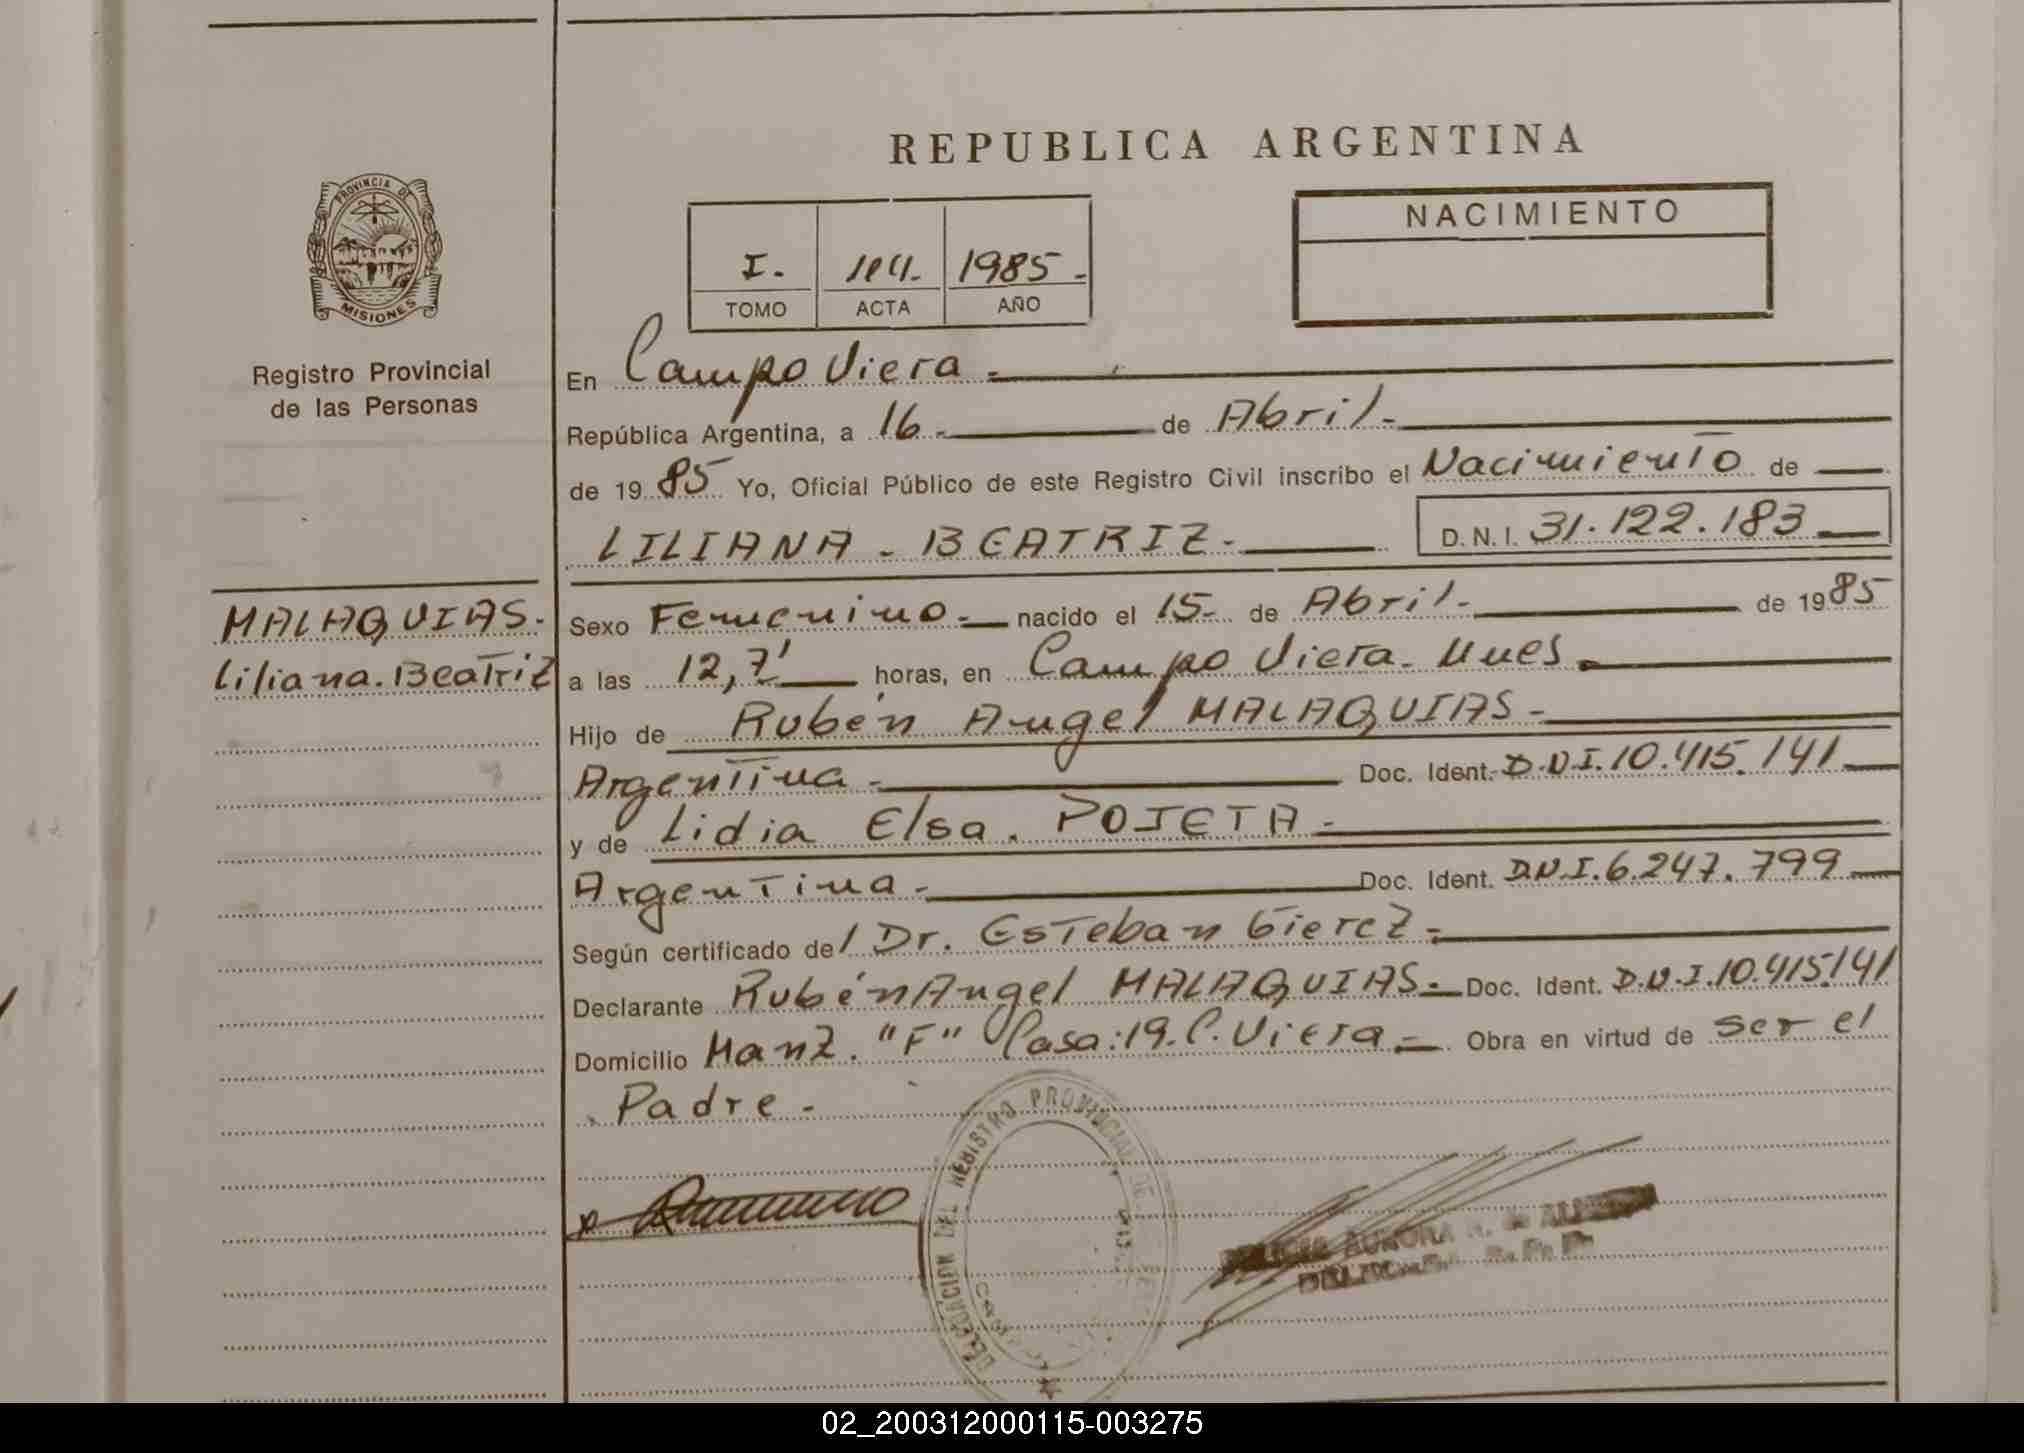 REPUBLICA ARGENTINA
PROVINCIA DE
MISIONES
Registro Provincial
de las Personas
NACIMIENTO
I. 1985.-
TOMO ACTA AÑO
En Campo Viera.-
República Argentina, a 16.- de Abril.-
de 1985 Yo, Oficial Público de este Registro Civil inscribo el Nacimiento de
LILIANA - BEATRIZ.- D.N.I. 31.122.183
MALAQUIAS.-
Liliana.Beatriz
Sexo Femenino.- nacido el 15.- de Abril.- de 1985
a las 12,7' horas, en Campo Viera. Mnes.
Hijo de Rubén Angel MALAQUIAS.-
Argentina.- Doc. Ident. D.N.I.10.415.141
y de Lidia Elsa. POJETA.-
Argentina.- Doc. Ident. D.N.I.6.247.799
Según certificado del Dr. Esteban Gierez.-
Declarante Rubén Angel MALAQUIAS.- Doc. Ident. D.N.I.10.415.141
Domicilio Manz. "F" Casa:19.C.Viera.- Obra en virtud de ser el
Padre.-
DELEGACION DEL REGISTRO PROVINCIAL DE
AURORA
02_200312000115-003275